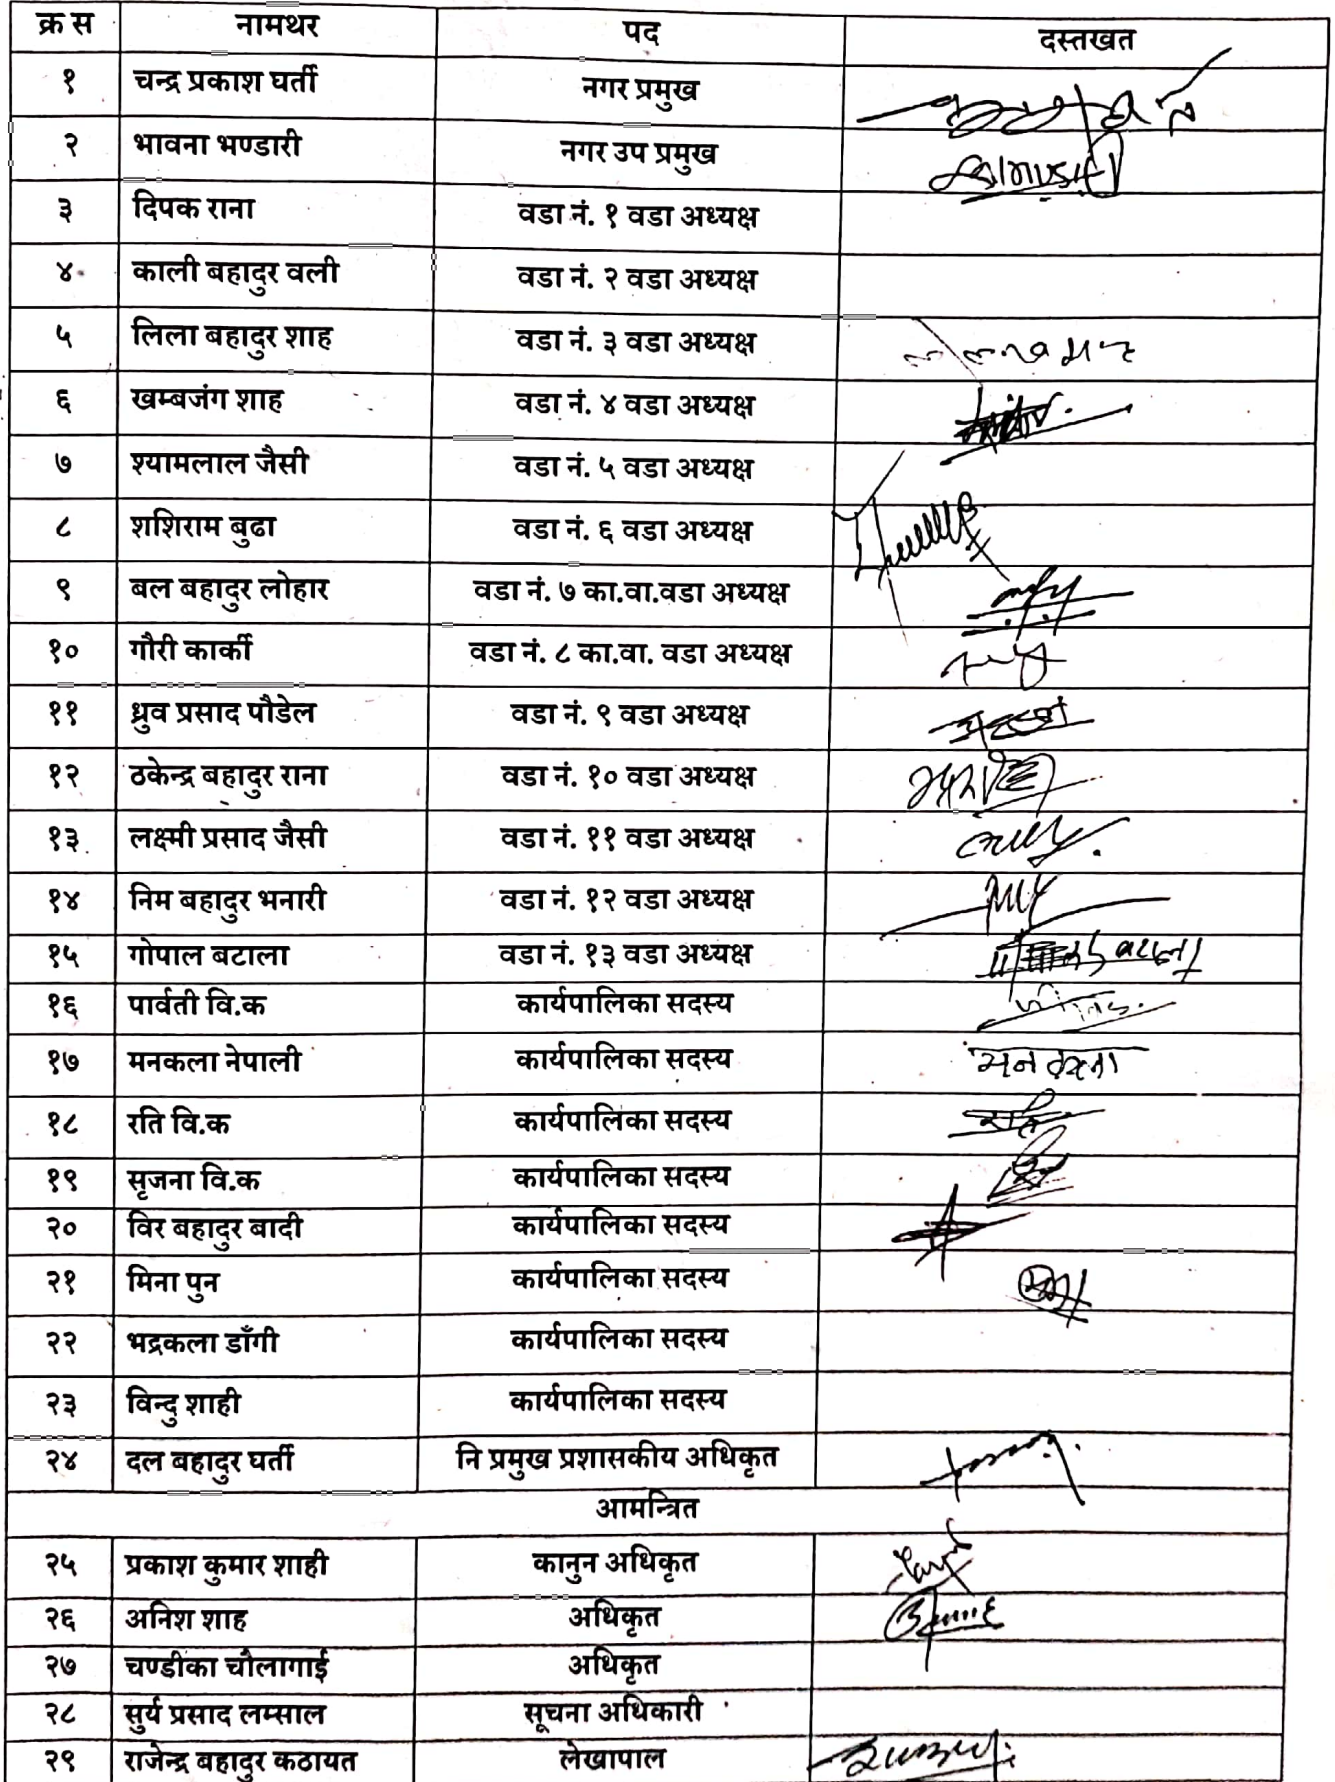 क्र स नामथर पद दस्तखत
१ चन्द्र प्रकाश घर्ती नगर प्रमुख
२ भावना भण्डारी नगर उप प्रमुख
३ दिपक राना वडा नं. १ वडा अध्यक्ष
४ काली बहादुर वली वडा नं. २ वडा अध्यक्ष
५ लिला बहादुर शाह वडा नं. ३ वडा अध्यक्ष
६ खम्बजंग शाह वडा नं. ४ वडा अध्यक्ष
७ श्यामलाल जैसी वडा नं. ५ वडा अध्यक्ष
८ शशिराम बुढा वडा नं. ६ वडा अध्यक्ष
९ बल बहादुर लोहार वडा नं. ७ का.वा.वडा अध्यक्ष
१० गौरी कार्की वडा नं. ८ का.वा. वडा अध्यक्ष
११ ध्रुव प्रसाद पौडेल वडा नं. ९ वडा अध्यक्ष
१२ ठकेन्द्र बहादुर राना वडा नं. १० वडा अध्यक्ष
१३ लक्ष्मी प्रसाद जैसी वडा नं. ११ वडा अध्यक्ष
१४ निम बहादुर भनारी वडा नं. १२ वडा अध्यक्ष
१५ गोपाल बटाला वडा नं. १३ वडा अध्यक्ष
१६ पार्वती वि.क कार्यपालिका सदस्य
१७ मनकला नेपाली कार्यपालिका सदस्य मनकला
१८ रति वि.क कार्यपालिका सदस्य
१९ सृजना वि.क कार्यपालिका सदस्य
२० विर बहादुर बादी कार्यपालिका सदस्य
२१ मिना पुन कार्यपालिका सदस्य
२२ भद्रकला डाँगी कार्यपालिका सदस्य
२३ विन्दु शाही कार्यपालिका सदस्य
२४ दल बहादुर घर्ती नि प्रमुख प्रशासकीय अधिकृत
आमन्त्रित
२५ प्रकाश कुमार शाही कानुन अधिकृत
२६ अनिश शाह अधिकृत
२७ चण्डीका चौलागाई अधिकृत
२८ सुर्य प्रसाद लम्साल सूचना अधिकारी
२९ राजेन्द्र बहादुर कठायत लेखापाल